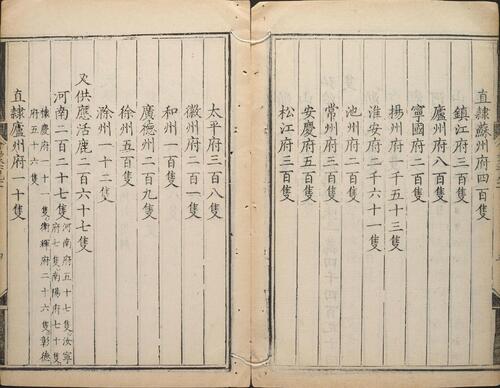 直隸蘇州府四百隻
鎮江府三百隻
廬州府八百隻
寧國府二百隻
揚州府一千五十三隻
淮安府二千六十一隻
池州府二百隻
常州府三百隻
安慶府五百隻
松江府三百隻
太平府三百八隻
徽州府二百一隻
和州一百隻
廣德州二百九隻
徐州五百隻
滁州一十二隻
又供應活鹿二百六十七隻
河南二百二十七隻 河南府五十七隻汝寧
府七隻南陽府七十隻
懷慶府一十一隻衛輝府二十六隻彰德
府五十六隻
直隸廬州府一十隻